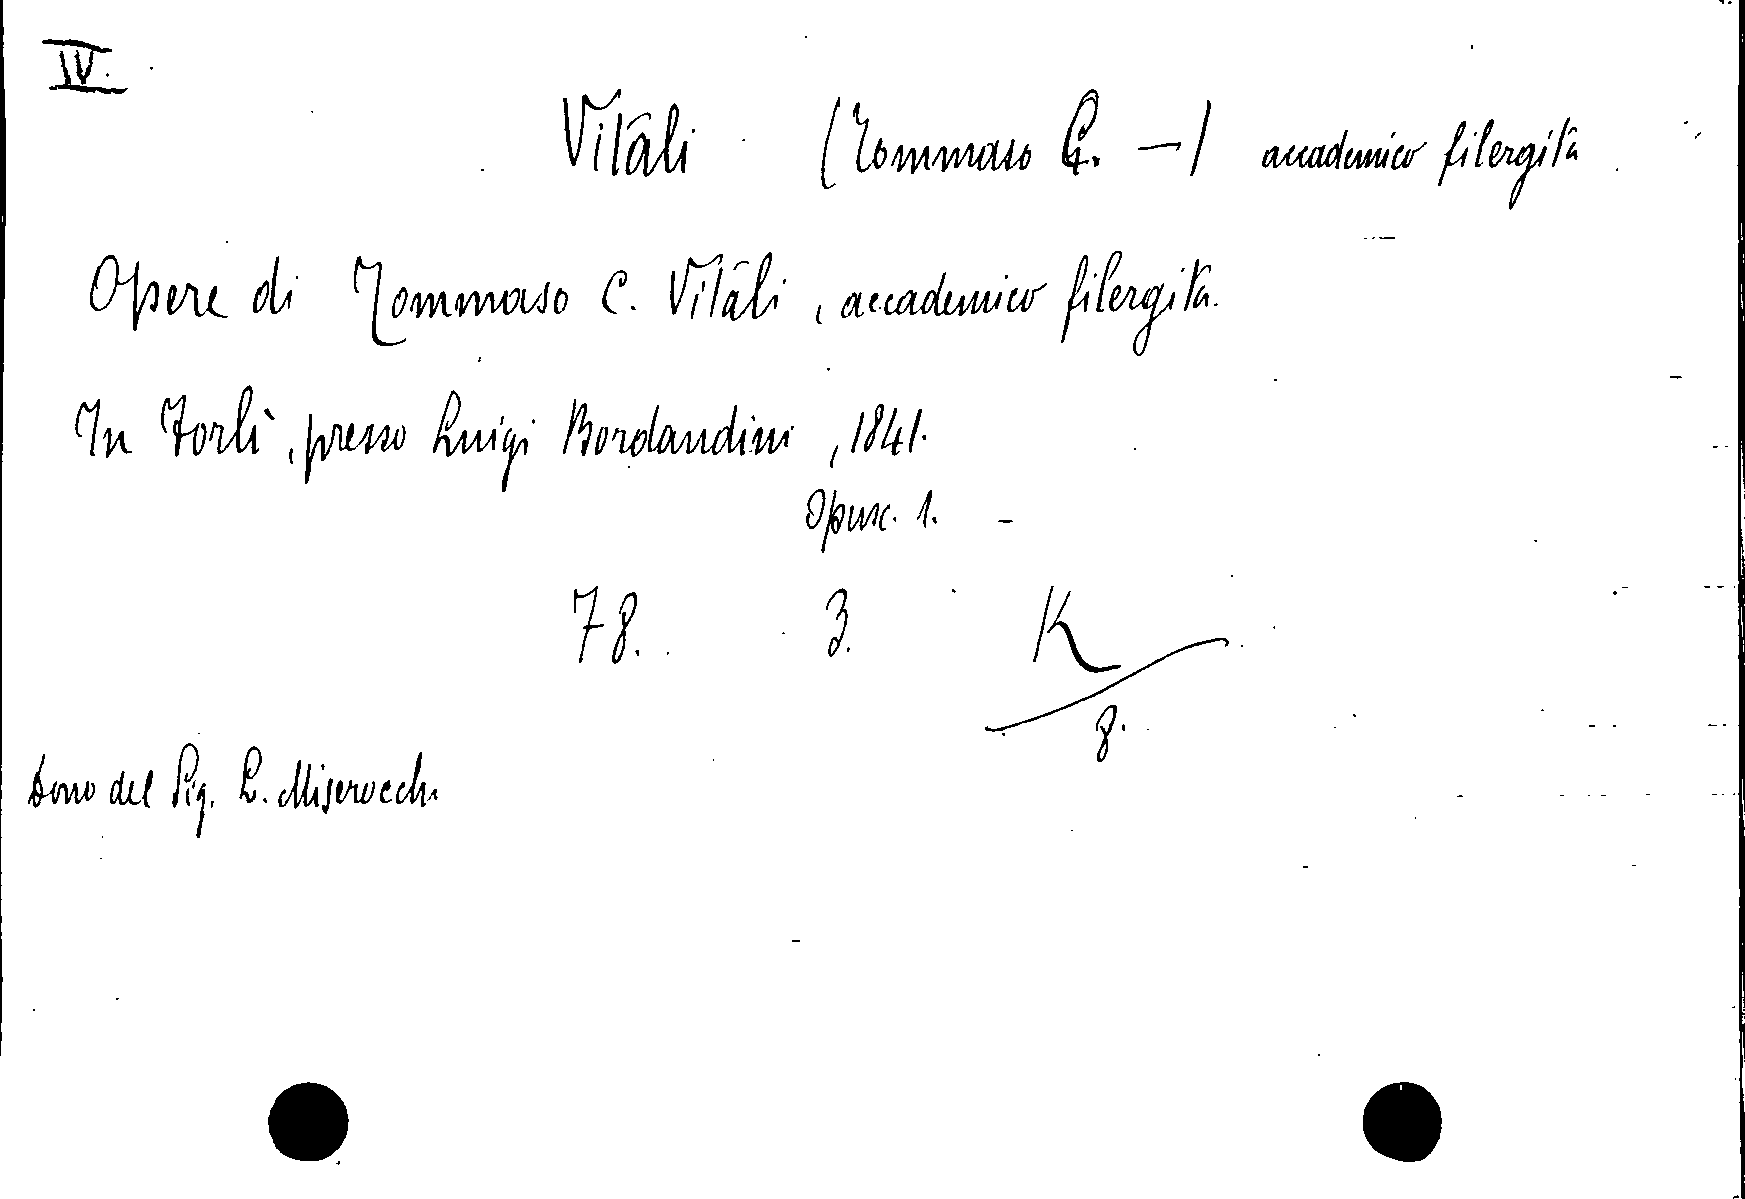 IV.
Vitali (Tommaso C. —) accademico filergita
Opere di Tommaso C. Vitali, accademico filergita.
In Forlì, presso Luigi Bordandini, 1841.
Opusc. 1. -
78. 3. K
8.
Dono del Sig. L. Miserocchi